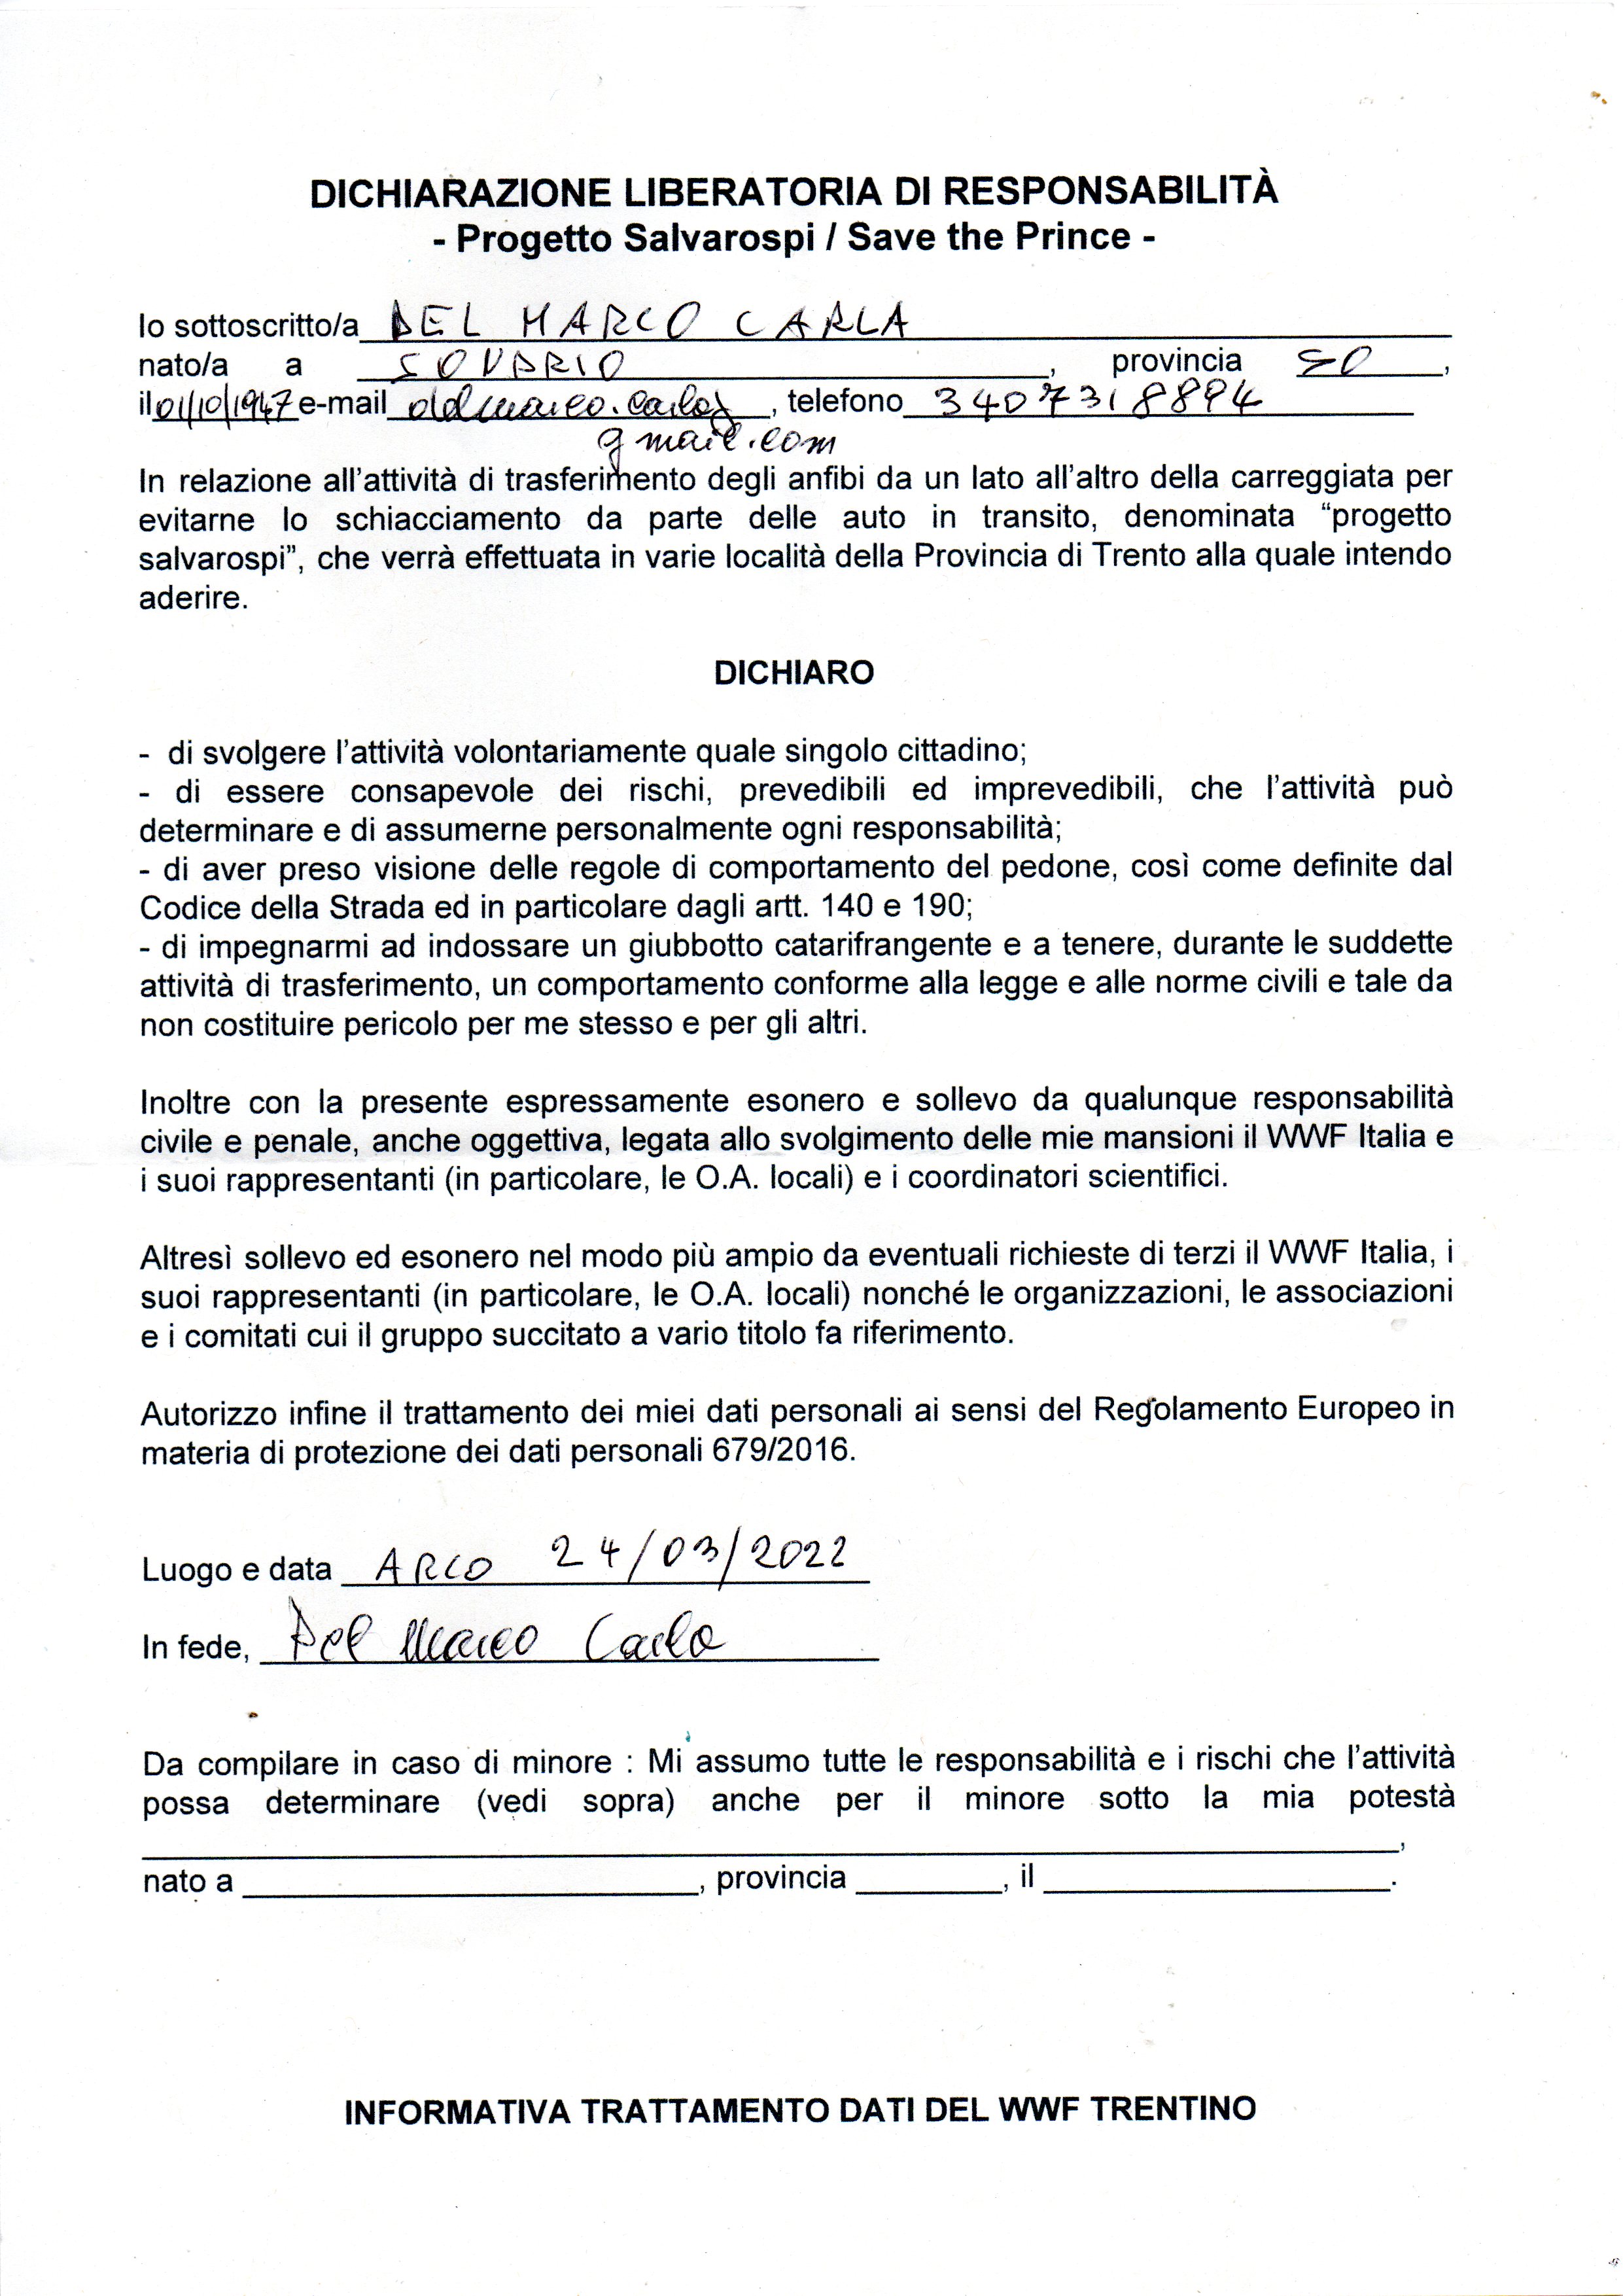 DICHIARAZIONE LIBERATORIA DI RESPONSABILITÀ
- Progetto Salvarospi / Save the Prince -
Io sottoscritto/a DEL MARCO CARLA
nato/a a , provincia SO,
il 01/10/1947 e-mail , telefono 3407318894
gmail.com
In relazione all’attività di trasferimento degli anfibi da un lato all’altro della carreggiata per
evitarne lo schiacciamento da parte delle auto in transito, denominata “progetto
salvarospi”, che verrà effettuata in varie località della Provincia di Trento alla quale intendo
aderire.
DICHIARO
- di svolgere l’attività volontariamente quale singolo cittadino;
- di essere consapevole dei rischi, prevedibili ed imprevedibili, che l’attività può
determinare e di assumerne personalmente ogni responsabilità;
- di aver preso visione delle regole di comportamento del pedone, così come definite dal
Codice della Strada ed in particolare dagli artt. 140 e 190;
- di impegnarmi ad indossare un giubbotto catarifrangente e a tenere, durante le suddette
attività di trasferimento, un comportamento conforme alla legge e alle norme civili e tale da
non costituire pericolo per me stesso e per gli altri.
Inoltre con la presente espressamente esonero e sollevo da qualunque responsabilità
civile e penale, anche oggettiva, legata allo svolgimento delle mie mansioni il WWF Italia e
i suoi rappresentanti (in particolare, le O.A. locali) e i coordinatori scientifici.
Altresì sollevo ed esonero nel modo più ampio da eventuali richieste di terzi il WWF Italia, i
suoi rappresentanti (in particolare, le O.A. locali) nonché le organizzazioni, le associazioni
e i comitati cui il gruppo succitato a vario titolo fa riferimento.
Autorizzo infine il trattamento dei miei dati personali ai sensi del Regolamento Europeo in
materia di protezione dei dati personali 679/2016.
Luogo e data ARCO 24/03/2022
In fede, Del Marco Carla
Da compilare in caso di minore : Mi assumo tutte le responsabilità e i rischi che l’attività
possa determinare (vedi sopra) anche per il minore sotto la mia potestà
,
nato a , provincia , il .
INFORMATIVA TRATTAMENTO DATI DEL WWF TRENTINO